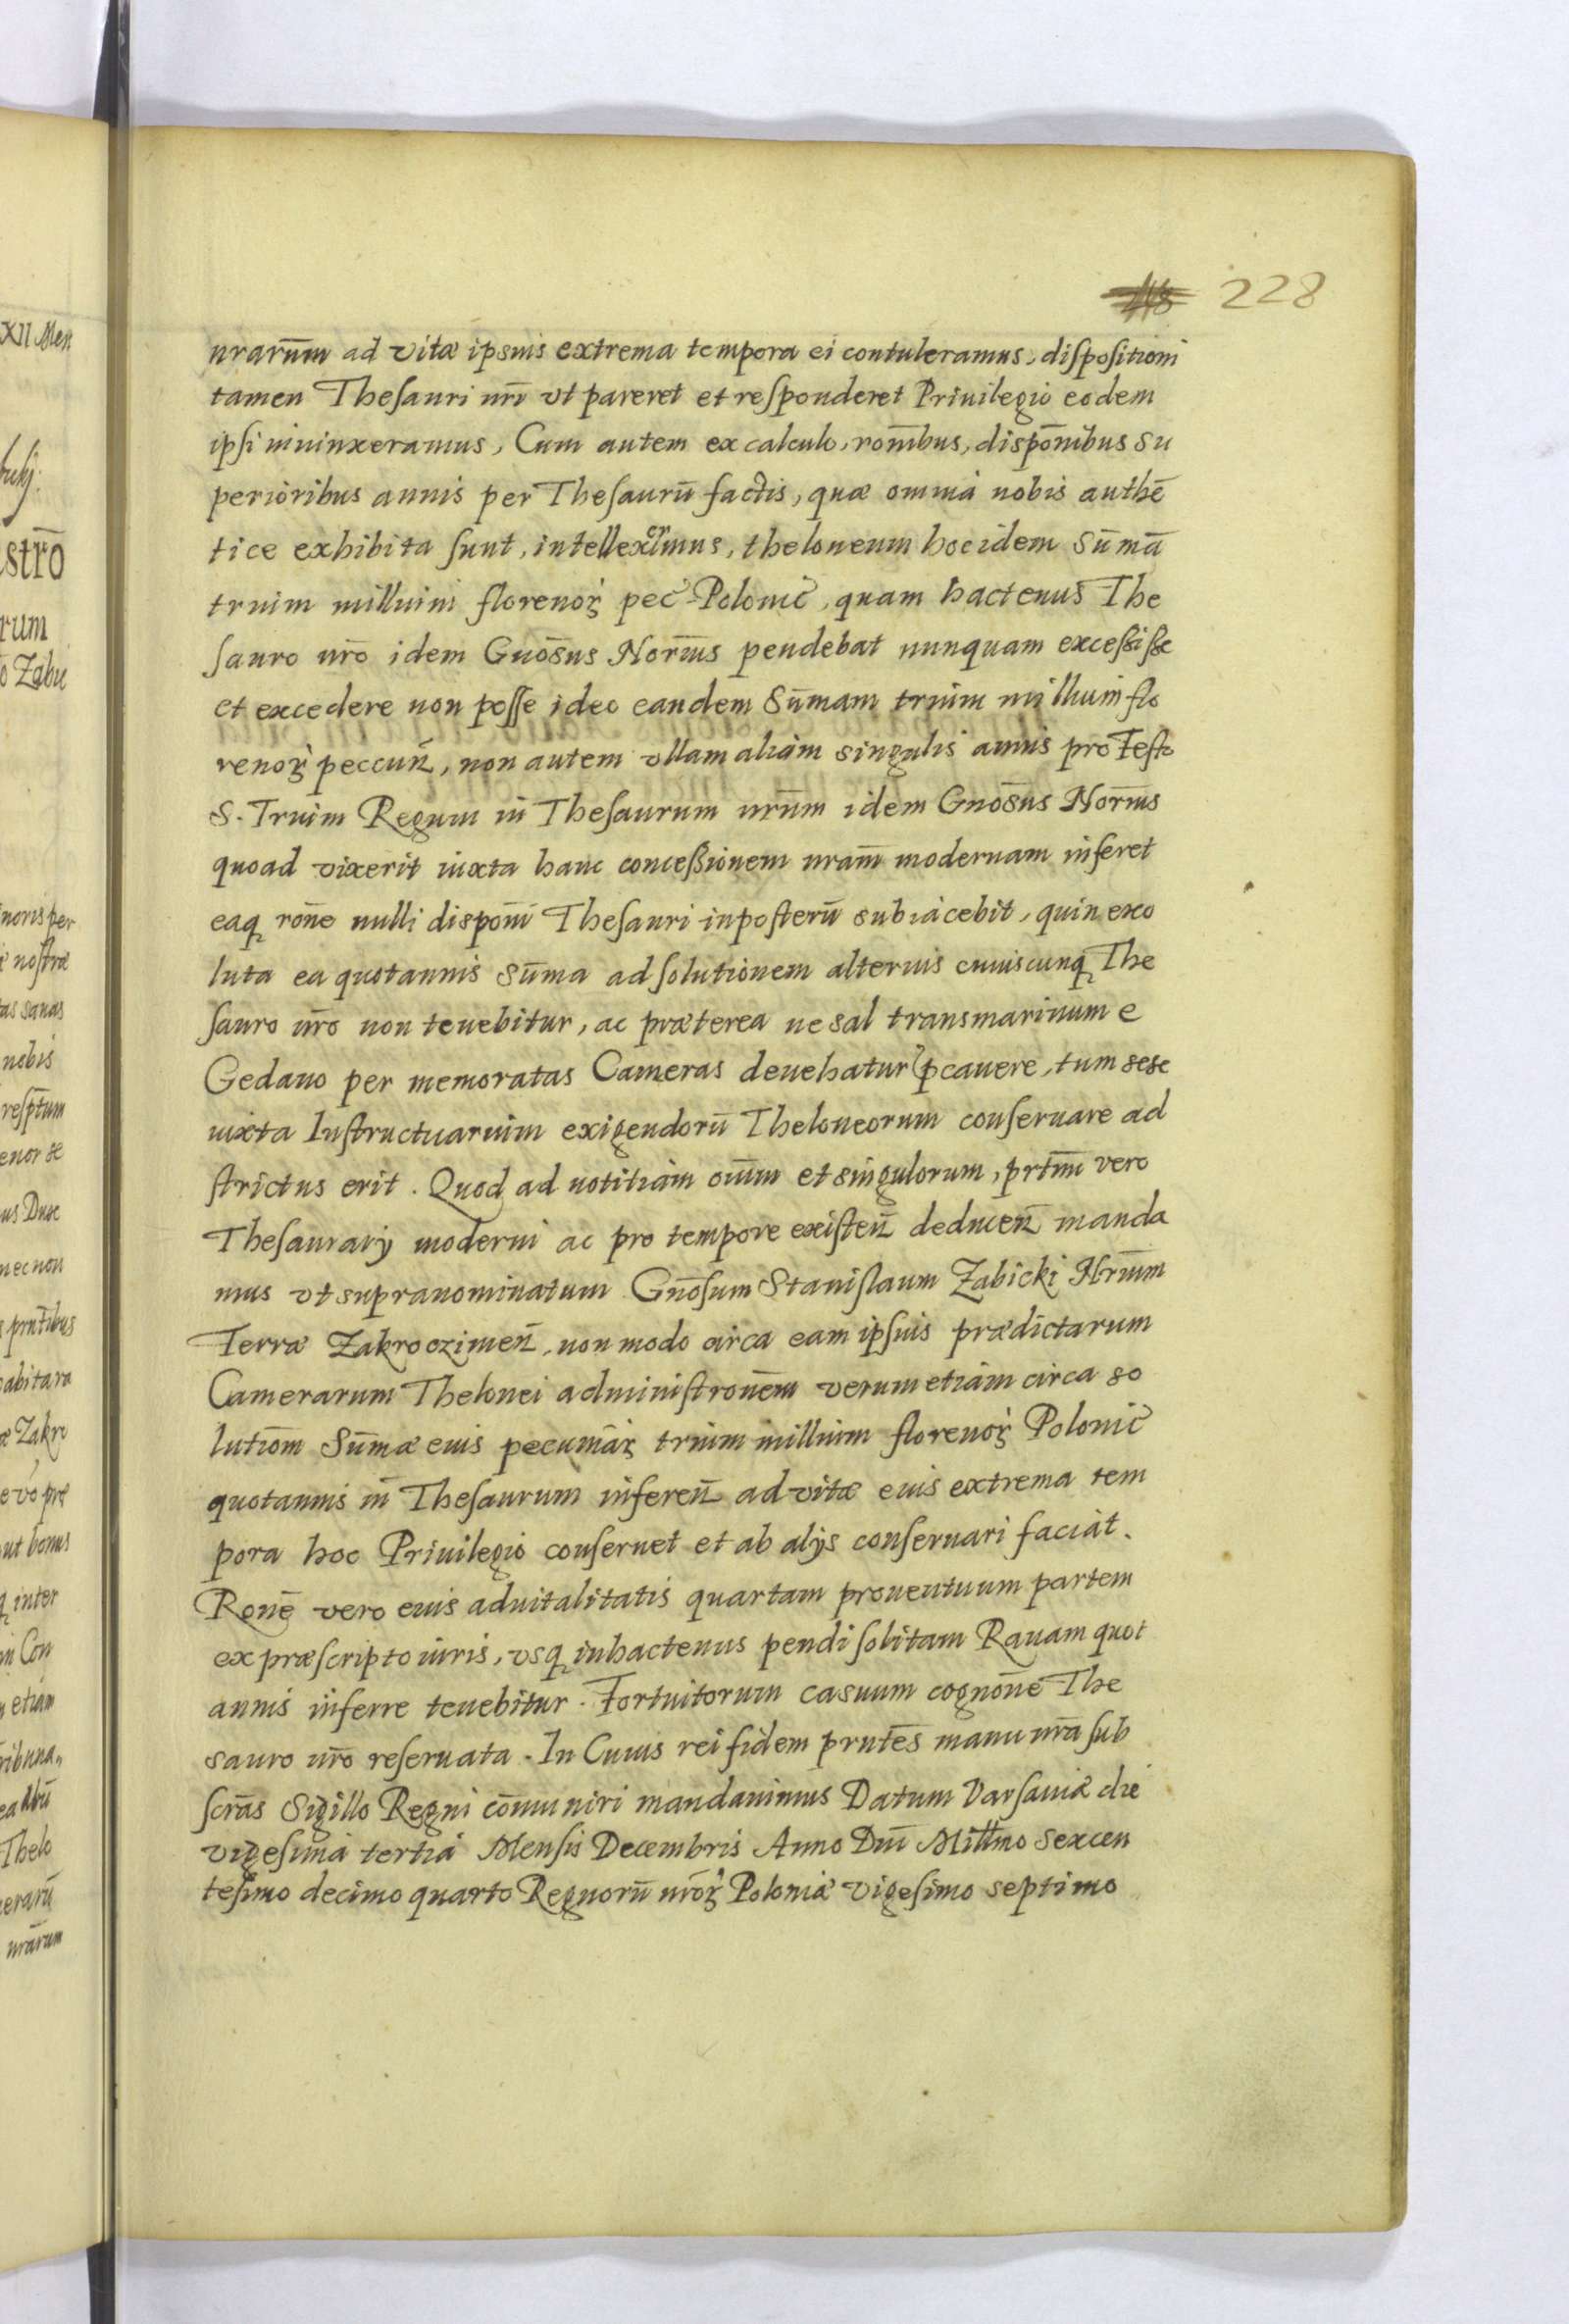 228
nrarum̄ ad vitæ ipsius extrema tempora ei contuleramus, dispositioni
tamen Thesauri nr̄i vt pareret et responderet Priuilegio eodem
ipsi iniunxeramus, Cum autem ex calculo, ron̄ibus, dispōnibus su
perioribus annis per Thesaurū factis, quæ omnia nobis authē
tice exhibita sunt, intelleximus, theloneum hoc idem Sūmā
trium millium florenoꝝ pec̃ Polonic̃, quam hactenus The
sauro nrō idem Gnōsus Nor̄ius pendebat nunquam excessisse
et excedere non posse ideo eandem Sūmam trium millium flo
renoꝝ peccun̄, non autem vllam aliam singulis annis pro Festo
S. Trium Regum in Thesaurum nrūm idem Gnōsus Nor̄ius
quoad vixerit iuxta hanc concessionem nram̄ modernam inferet
eaqꝫ rōne nulli dispōni Thesauri inposterū subiacebit, quin exo
luta ea quotannis Sūma ad solutionem alterius cuiuscunqꝫ The
sauro nr̄o non tenebitur, ac præterea ne sal transmarinum e
Gedano per memoratas Cameras deuehatur p̃cauere, tum sese
iuxta Instructuarium exigendorū Theloneorum conseruare ad
strictus erit. Quod ad notitiam om̄ium et singulorum, prtim̄ vero
Thesaurarij moderni ac pro tempore existen̄ deducen̄ manda
mus vt supranominatum Gnōsum Stanislaum Zabicki Nr̄ium
Terræ Zakroczimen̄, non modo circa eam ipsius prædictarum
Camerarum Thelonei administronēm verum etiam circa so
lutiōm Sūmæ eius pecuniāꝝ trium millium florenoꝝ Polonic̃
quotannis in Thesaurum inferen̄ ad vitæ eius extrema tem
pora hoc Priuilegio conseruet et ab alijs conseruari faciat.
Ronē vero eius aduitalitatis quartam prouentuum partem
ex præscripto iuris, vsqꝫ inhactenus pendi solitam Rauam quot
annis inferre tenebitur. Fortuitorum casuum cognōne The
sauro nr̄o reseruata. In Cuius rei fidem prntēs manu nrā sub
scrās Sigillo Regni cōmuniri mandauimus Datum Varsauiæ die
vigesima tertia Mensis Decembris Anno Dn̄i Millm̄o sexcen
tesimo decimo quarto Regnorū nr̄oꝝ Poloniæ vigesimo septimo